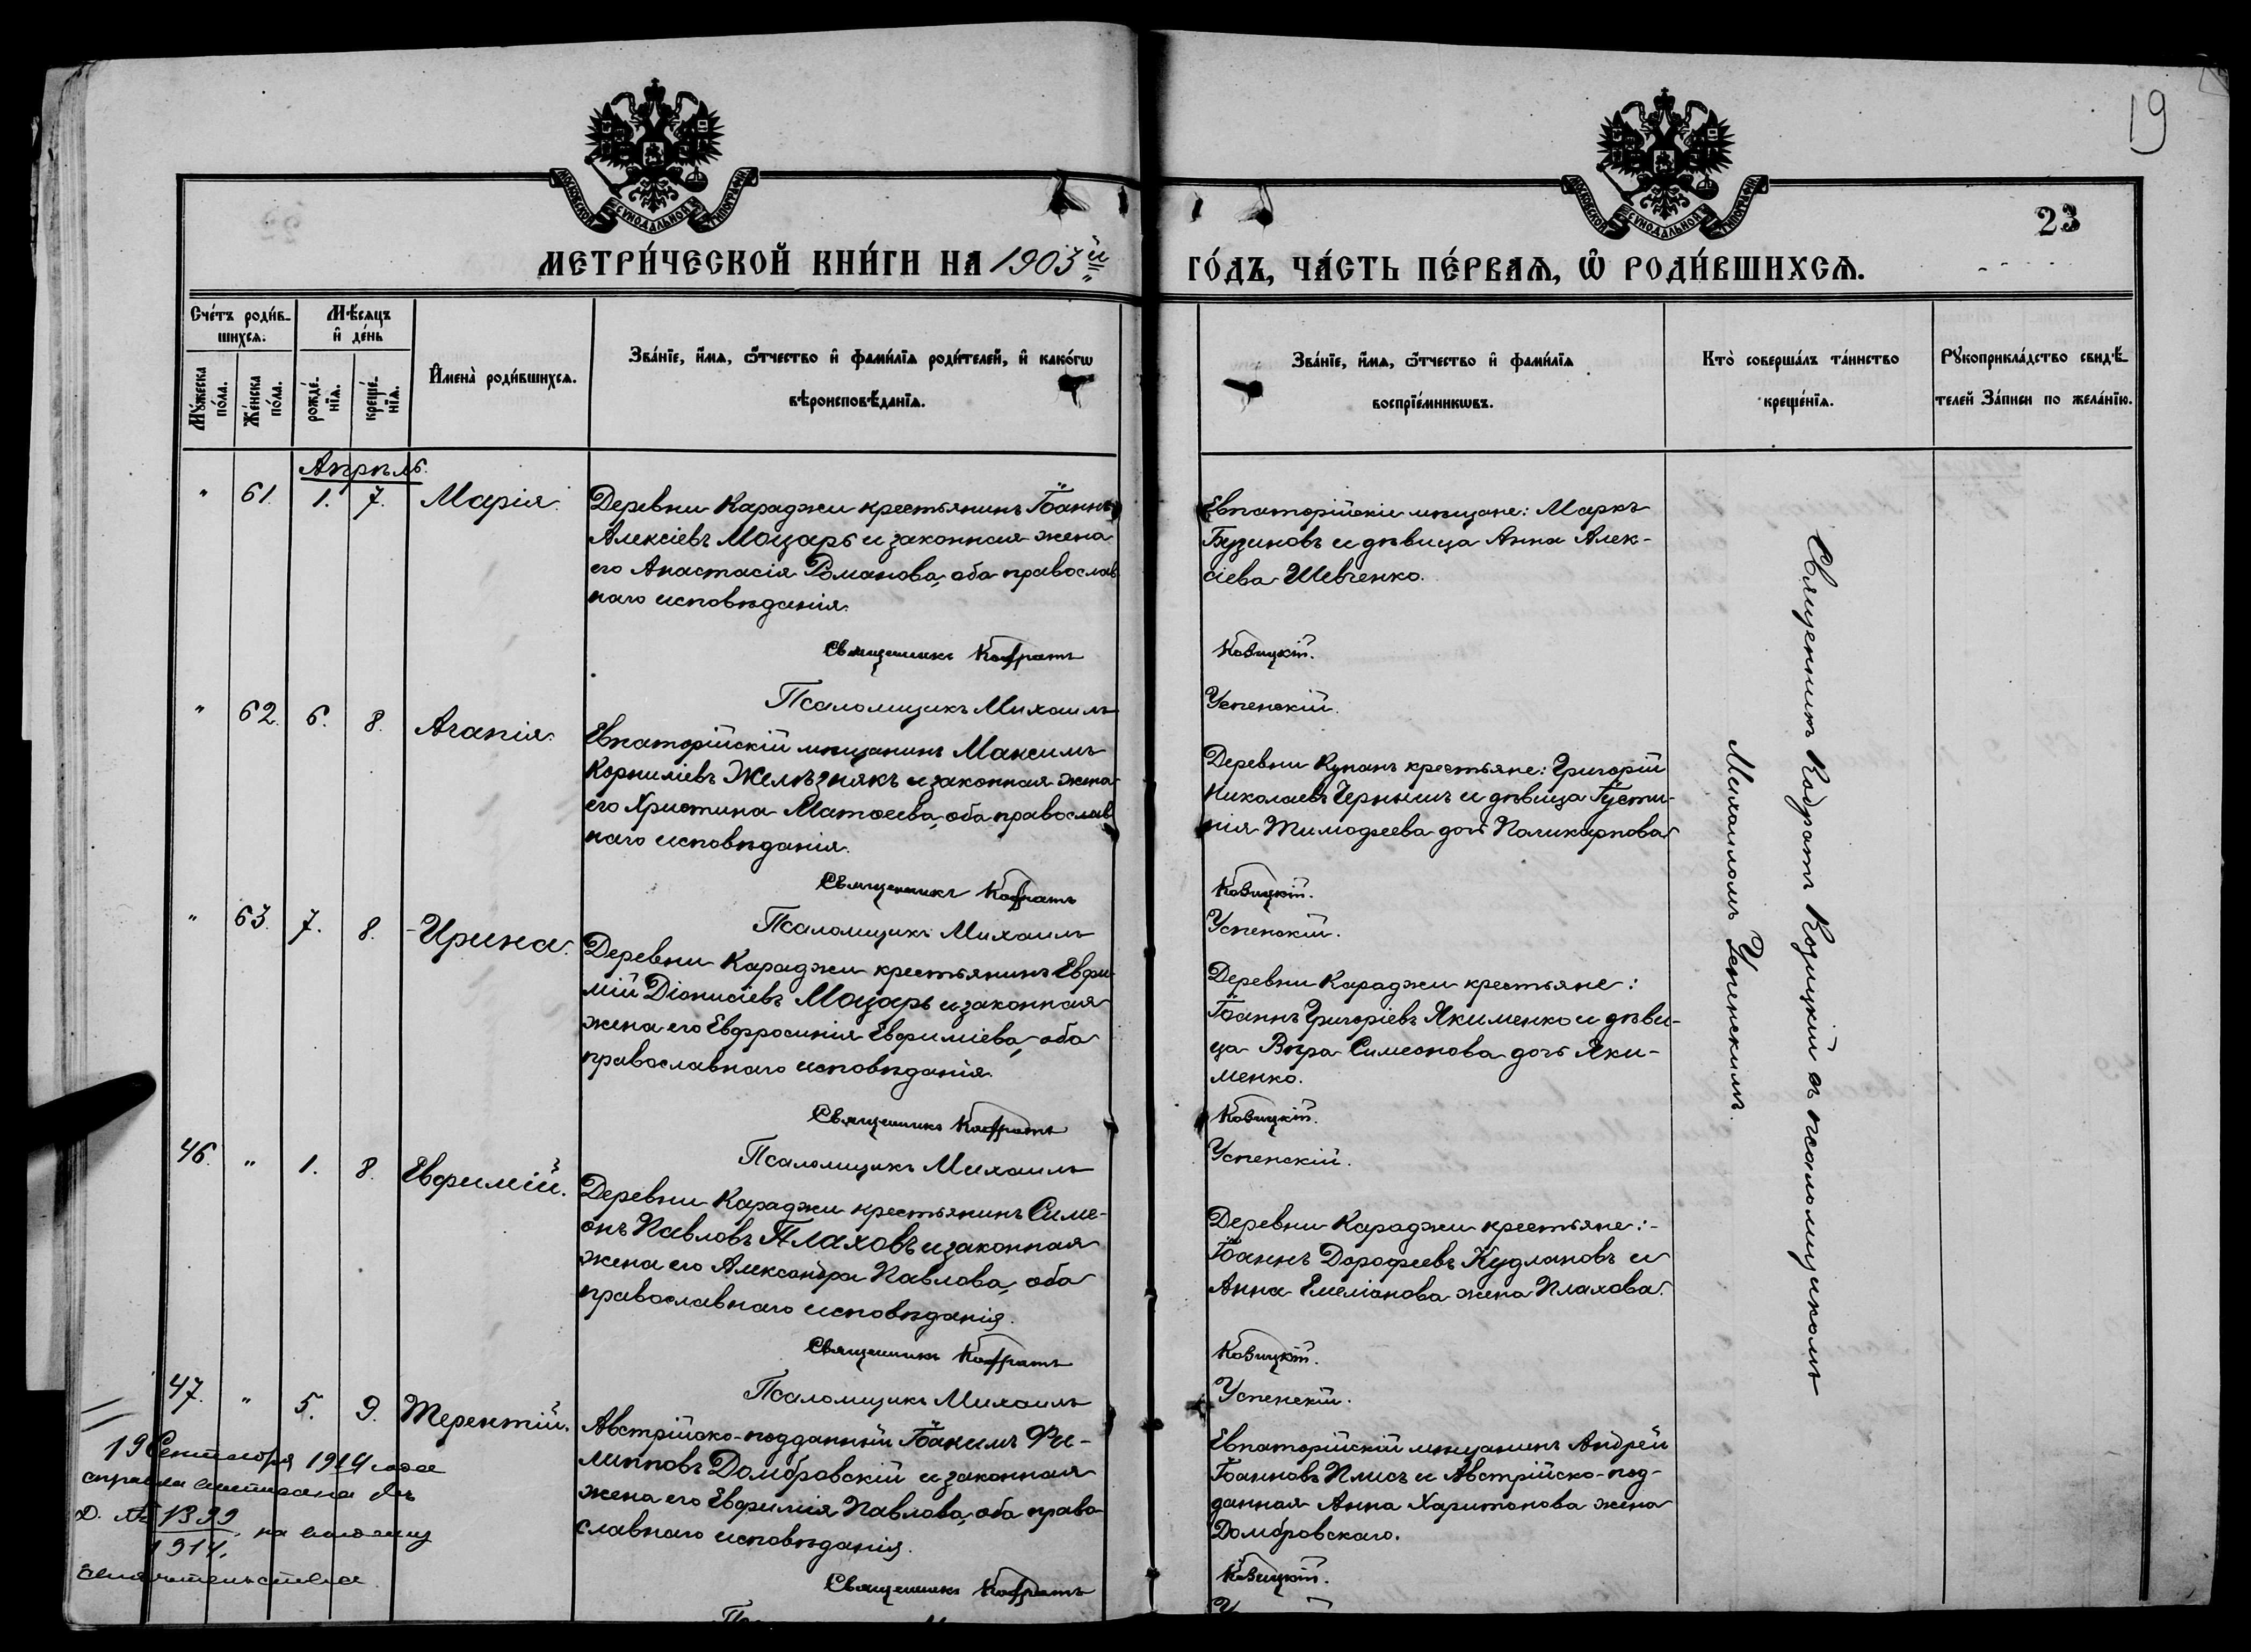 19
МОСКОВСКОЙ СѴНОДАЛЬНОЙ ТИПОГРАФІИ
МОСКОВСКОЙ СѴНОДАЛЬНОЙ ТИПОГРАФІИ
23
МЕТРИ́ЧЕСКОЙ КНИ́ГИ НА 1903й
ГО́ДЪ, ЧА́СТЬ ПЕ́РВАѦ, Ѿ РОДИ́ВШИХСѦ.
Сче́тъ роди́в-
шихсѧ.
Мꙋ́жеска по́ла.
Же́нска по́ла.
Мѣ́сѧцъ
и҆ де́нь
рожде́-
нїѧ.
креще́-
нїѧ.
И҆мена̀ роди́вшихсѧ.
Зва́нїе, и҆́мѧ, ѻ҆́тчество и҆ фами́лїѧ роди́телей, и҆ како́гѡ
вѣроисповѣ́данїѧ.
Зва́нїе, и҆́мѧ, ѻ҆́тчество и҆ фами́лїѧ
воспрїе́мникѡвъ.
Кто̀ соверша́лъ та́инство
креще́нїѧ.
Рꙋкоприкла́дство свидѣ́-
телей За́писи по жела́нїю.
Апрѣль.
" 61. 1. 7. Марія.
Деревни Караджи крестьянинъ Іоаннъ
Алексіевъ Моцарь и законная жена
его Анастасія Романова, оба православ
наго исповѣданія.
Священникъ Кодратъ
Псаломщикъ Михаилъ
Евпаторійскіе мѣщане: Маркъ
Бузиновъ и дѣвица Анна Алек-
сіева Шевченко.
Козицкій.
Успенскій.
" 62. 6. 8. Агапія.
Евпаторійскій мѣщанинъ Максимъ
Корниліевъ Желѣзнякъ и законная жена
его Христина Матѳеева, оба православ
наго исповѣданія.
Священникъ Кодратъ
Псаломщикъ Михаилъ
Деревни Кунанъ крестьяне: Григорій
Николаевъ Чернышъ и дѣвица Іусти-
нія Тимофеева дочь Поликарпова
Козицкій.
Успенскій.
" 63. 7. 8. Ирина.
Деревни Караджи крестьянинъ Евфи-
мій Діонисіевъ Моцарь и законная
жена его Евфросинія Евфиміева, оба
православнаго исповѣданія.
Священникъ Кодратъ
Псаломщикъ Михаилъ
Деревни Караджи крестьяне:
Іоаннъ Григоріевъ Якименко и дѣви-
ца Вѣра Симеонова дочь Яки-
менко.
Козицкій.
Успенскій.
46. " 1. 8. Евфимій.
Деревни Караджи крестьянинъ Симе-
онъ Павловъ Плаховъ и законная
жена его Александра Павлова, оба
православнаго исповѣданія.
Священникъ Кодратъ
Псаломщикъ Михаилъ
Деревни Караджи крестьяне:-
Іоаннъ Дорофеевъ Кудлановъ и
Анна Емеліанова жена Плахова.
Козицкій.
Успенскій.
47. " 5. 9. Терентій.
Австрійско-подданный Іоакимъ Фи-
липповъ Домбровскій и законная
жена его Евфимія Павлова, оба право
славнаго исповѣданія.
Священникъ Кодратъ
Евпаторійскій мѣщанинъ Андрей
Іоанновъ Плисъ и Австрійско-под-
данная Анна Харитонова жена
Домбровскаго.
Козицкій.
Священникъ Кодратъ Козицкій съ псаломщикомъ
Михаиломъ Успенскимъ.
19 Сентября 1914 года
справка
1399
1914.